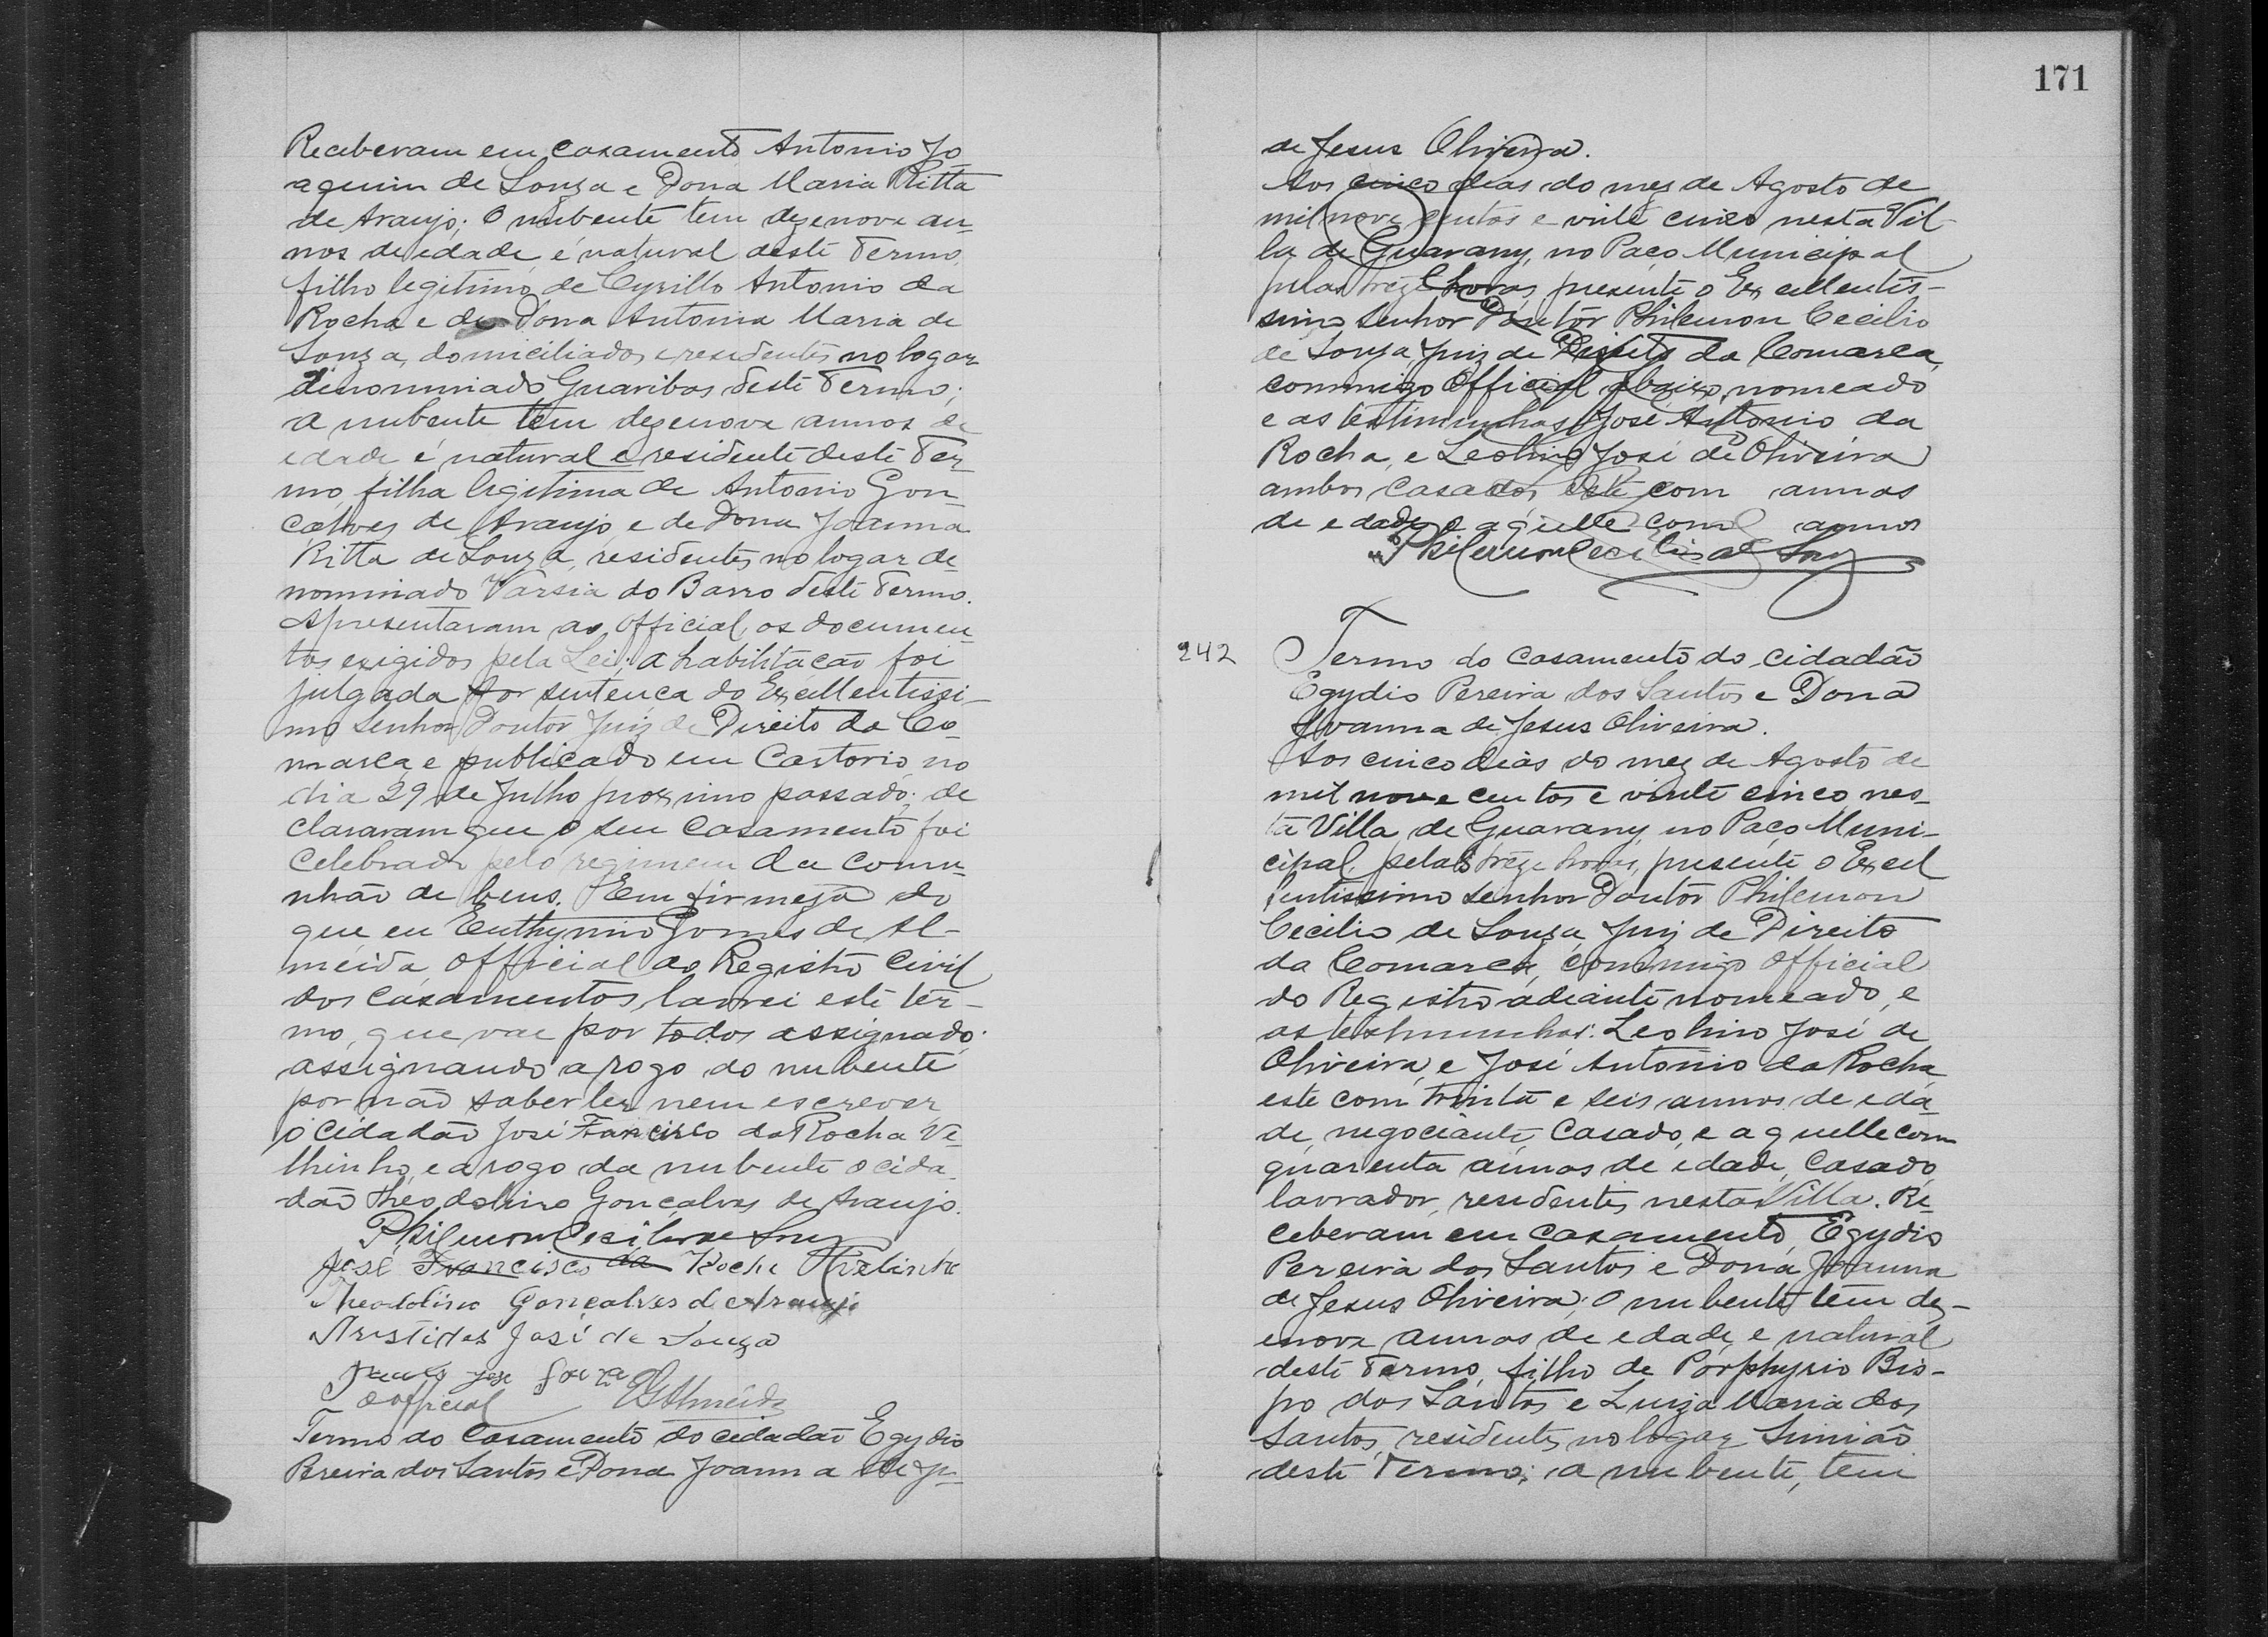 Receberam em casamento Antonio Jo
aquim de Souza e Dona Maria Ritta
de Araujo; O nubente tem dezenove an-
nos de edade, é natural deste Termo,
filho legitimo de Cyrillo Antonio da
Rocha e de Dona Antonia Maria de
Souza, domiciliados e residentes no logar
denominado Guaribas deste Termo;
a nubente tem dezenove annos de
edade é natural e residente deste Ter-
mo, filha legitima de Antonio Gon-
çalves de Araujo, e de Dona Joanna
Ritta de Souza, residentes no logar de-
nominado Varsia do Barro deste Termo.
Apresentaram ao official os documen-
tos exigidos pela Lei; a habilitação foi
julgada por sentença do Excellentissi-
mo Senhor Doutor Juiz de Direito da Co-
marca, e publicado em Cartorio, no
dia 29 de Julho proximo passado; de
clararam que o seu casamento foi
celebrado pelo regimem da commu-
nhão de bens. Em firmeza do
que eu Euthymio Gomes de Al-
meida, official do Registro Civil
dos casamentos, lavrei este ter-
mo, que vae por todos assignado;
assignando a rogo do nubente
por não saber ler nem escrever
o cidadão José Francisco da Rocha Ve-
lhinho, e a rogo da nubente o cida-
dão Theodolino Gonçalves de Araujo.
Philemon Cecilio de Souza
José Francisco da Rocha
Theodolino Gonçalves de Araujo
Aristides José de Souza
José Souza
O official EGAlmeida
Termo do Casamento do cidadão Egydio
Pereira dos Santos e Dona Joanna de Je-
171
de Jesus Oliveira.
Aos cinco dias do mez de Agosto de
mil nove centos e vinte cinco nesta Vil-
la de Guarany, no Paço Municipal
pelas treze horas, presente o Excellentis-
simo Senhor Doutor Philemon Cecilio
de Souza, Juiz de Direito da Comarca,
commigo Official abaixo nomeado
e as testimunhas José Antonio da
Rocha, e Leolino José de Oliveira
ambos casados, este com annos
de edade e aquelle com annos
Philemon Cecilio de Souza
242 Termo do Casamento do cidadão
Egydio Pereira dos Santos e Dona
Joanna de Jesus Oliveira.
Aos cinco dias do mez de Agosto de
mil nove centos e vinte cinco nes-
ta Villa de Guarany, no Paço Muni-
cipal, pelas treze horas, presente o Excel
lentissimo Senhor Doutor Philemon
Cecilio de Souza, Juiz de Direito
da Comarca, commigo official
do Registro adeante nomeado, e
as testimunhas: Leolino José de
Oliveira, e José Antonio da Rocha,
este com trinta e seis annos de eda
de, negociante, casado, e aquelle com
quarenta annos de edade, casado,
lavrador, residentes nesta Villa. Re-
ceberam em casamento, Egydio
Pereira dos Santos e Dona Joanna
de Jesus Oliveira; O nubente tem dez-
enove annos de edade, e natural
deste Termo, filho de Porphyrio Bis-
po dos Santos e Luiza Maria dos
Santos, residentes no logar Simião
deste Termo; a nubente, tem